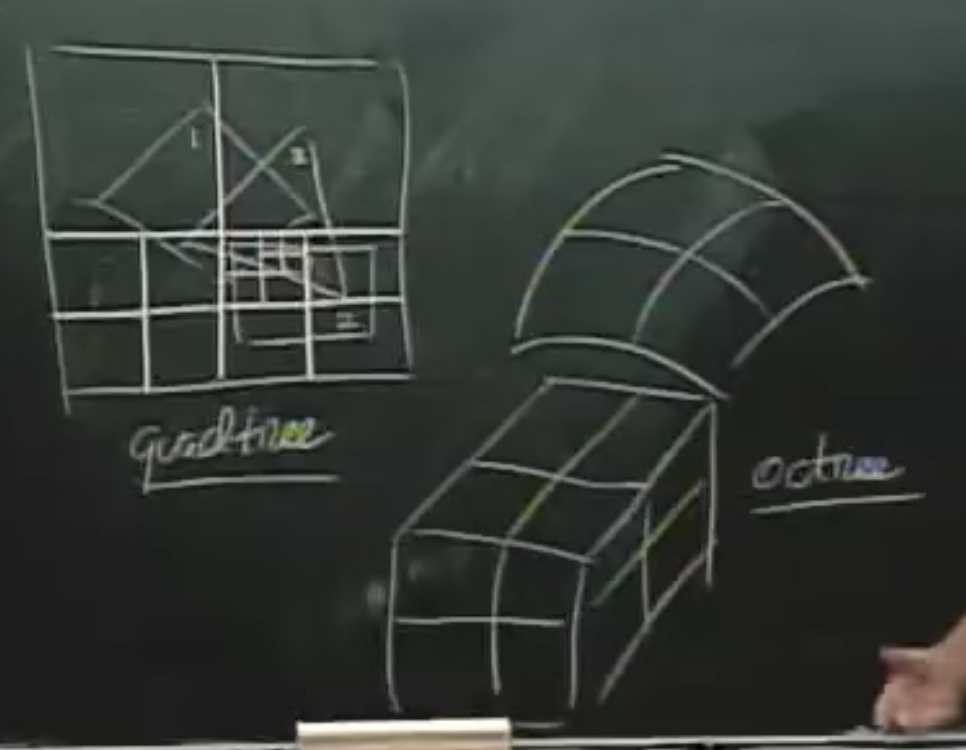 1
2
2
quadtree
octree